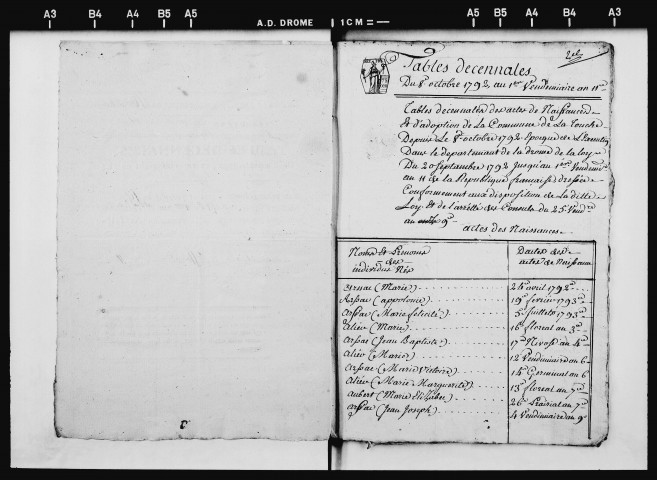 A3 B4 A4 A5 A.D. DROME 1 CM A5 B5 A4 B4 A3
Tables decennales
Du 8e octobre 1792 au 1er Vendemiaire an 11e
Tables decennales des actes de Naissances
Et d'adoption de La Commune de La Touche
Depuis Le 8e octobre 1792 Epoque de L'Execution
Dans le departement de la drome de la loy
Du 20 septembre 1792 Jusqu'au 1er Vendemre
an 11 de la Republique française dressée
Conformement aux disposition de La ditte
Loy Et de l'arretté des Consuls du 25 Vend.re
an 9e
actes des Naissances
Noms et Prenoms
des
individus Nés
Dattes des
actes de Naissance
(Marie) 24 avril 1792
Arssac (appolonie) 19e fevrier 1793
Arssac (Marie felicité) 5e Juillet 1793
aliés (Marie) 16e floreal an 3e
Arssac (Jean Baptiste) 17e Nivose an 4e
aliés (Marie) 12 Vendemiaire an 6
Arssac (Marie Victoire) 14e Germinal an 6
Aliés (Marie Marguerite) 13e floreal an 7e
aubert (Marie Elizabet) 26e Prairial an 7e
Arssac (Jean Joseph) 4 Vendemiaire an 9e